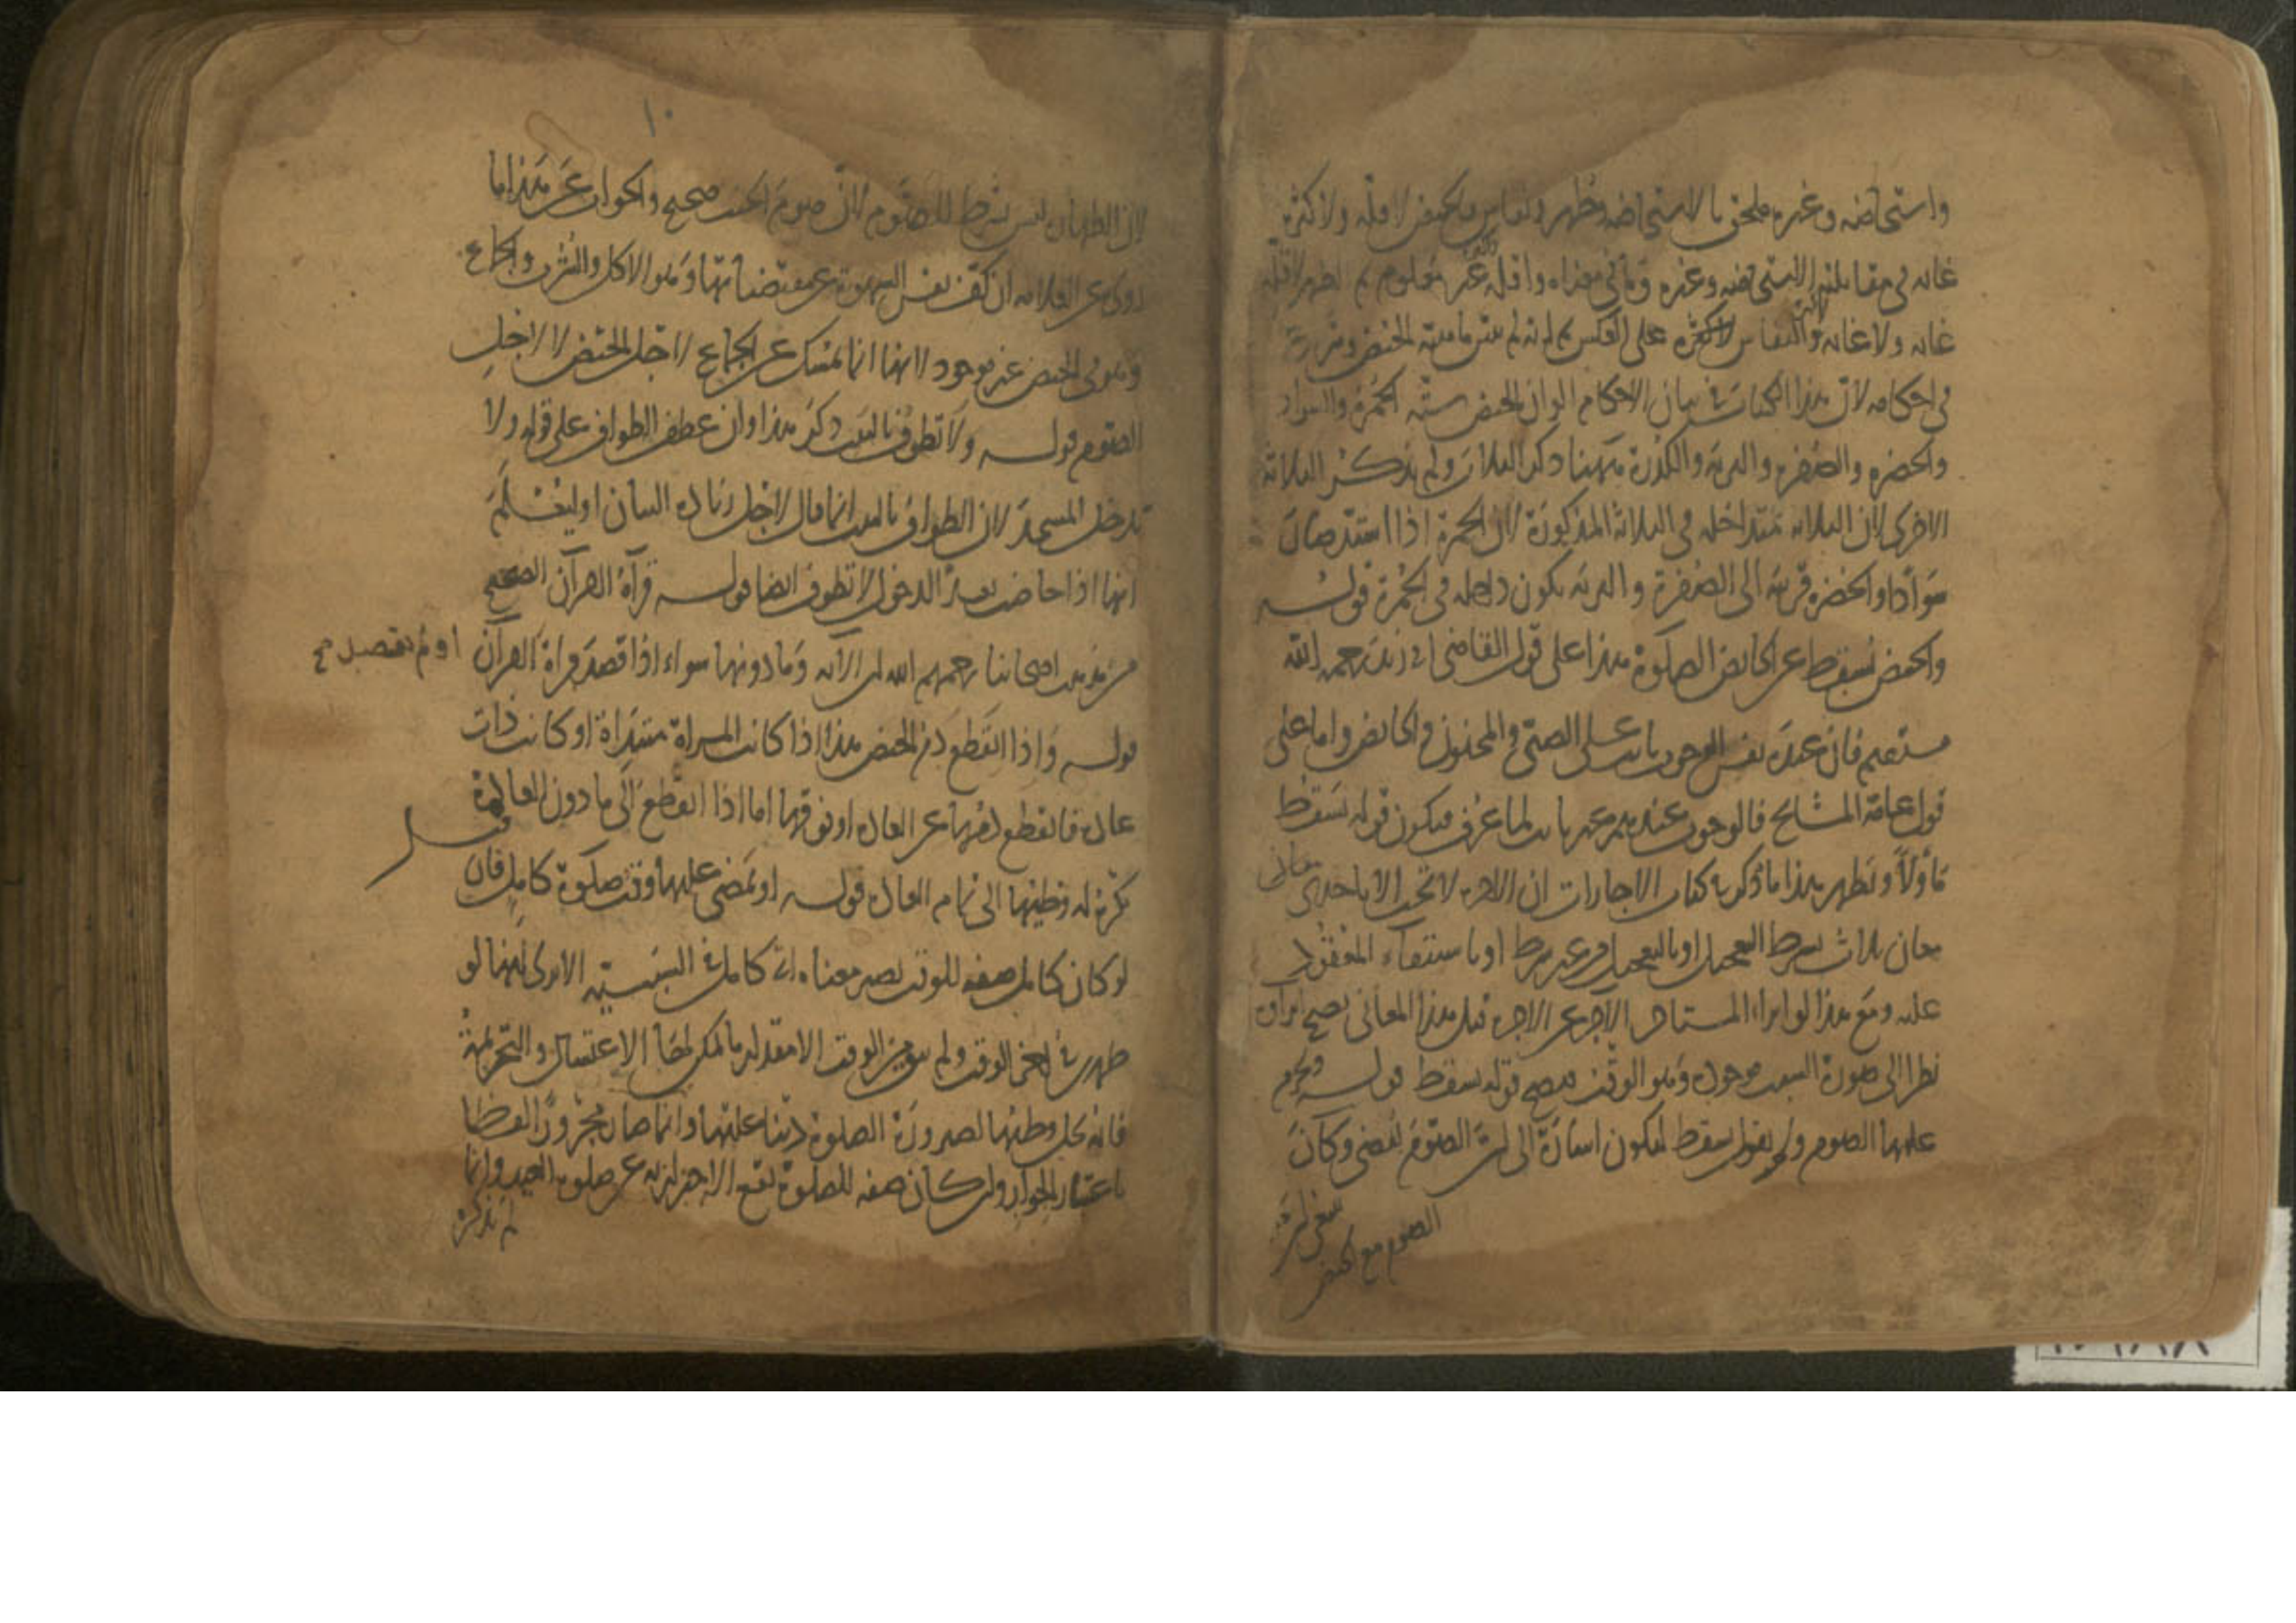 واستحاضه وغيره ملحق بالاستحاضه وطهر ونفاس والحيض لاقله ولاكثره
غايه في مقابلتها الاستحاضه وغيره وما في معناه واقله غير معلوم ثم الطهر لاقله
غايه ولا غايه والنفاس لاكثره على العكس
في احكامه لان هذا الكتاب في بيان الاحكام الوان الحيض ستة الحمرة والسواد
والخضره والصفره والتربيه والكدرة ههنا ذكر الثلاث ولم يذكر الثلاثة
الاخرى لان الثلاثه متداخله في الثلاثة المذكورة لان الحمرة اذا اشتد صارت
سوادا والخضره قريبه الى الصفرة والتربيه يكون داخله في الحمرة قوله
والحيض يسقط عن الحائض الصلوة هذا على قول القاضي ابي زيد رحمه الله
مستقيم فان عنده نفس الوجوب ثابت على الصبي والمجنون والحائض واما على
قول عامة المشايخ فالوجوب عندهم غير ثابت لما عرف فيكون قوله يسقط
مأولا ونظير هذا ما ذكر في كتاب الاجارات ان الاجره لا تجب الا باحدى معاني
معان ثلاث بشرط التعجيل او بالتعجيل من غير شرط او باستيفاء المعقود
عليه ومع هذا لو ابراء المستاجر الآجر عن الاجره قبل هذا المعاني يصح ابراؤه
نظرا الى صورة السبب موجوده وهو الوقت فيصح قوله يسقط قوله ويحرم
عليها الصوم ولم يقول يسقط ليكون اشارة الى ان الصوم يقضى وكان
ينبغي ان
الصوم مع الحيض
١٠
لان الطهارة ليس بشرط للصوم لان صوم الجنب صحيح والجواب عن هذا ما
روي عن العلامه ان كف نفس الشهوة عن مقتضياتها وهو الاكل والشرب والجماع
وهو في الحيض غير موجود لانها انما تمسك عن الجماع لاجل الحيض لا لاجل
الصوم قوله ولا تطوف بالبيت ذكر هذا وان عطف الطواف على قوله ولا
تدخل المسجد لان الطواف بالبيت انما قال لاجل زيادة البيان او ليعلم
انها اذا حاضت بعد الدخول لا تطوف ايضا قوله قرآة القرآن الصحيح
من مذهب اصحابنا رحمهم الله ان الآيه وما دونها سواء اذا قصد قراة القرآن او لم يقصد صح
قوله واذا انقطع دم الحيض هذا اذا كانت المراة مبتدأة او كانت ذات
عادة فانقطع دمها عن العاده او فوقها اما اذا انقطع الى ما دون العادة
يكره له وطيها الى تمام العاده قوله او يمضي عليها وقت صلوة كامل فان
لو كان كامل صفه للوقت يصير معناه اي كامل في السببية الا ترى انها لو
طهرت في آخر الوقت ولم يبق من الوقت الا مقدار ما يمكن لها الاغتسال والتحريمة
فانه يحل وطئها لصيرورة الصلوة دينا عليها وانما صار مجرورا لفظا
باعتبار الجوار ولو كان صفه للصلوة يقع الاحتراز به عن صلوة العيد وانما
لم يذكره